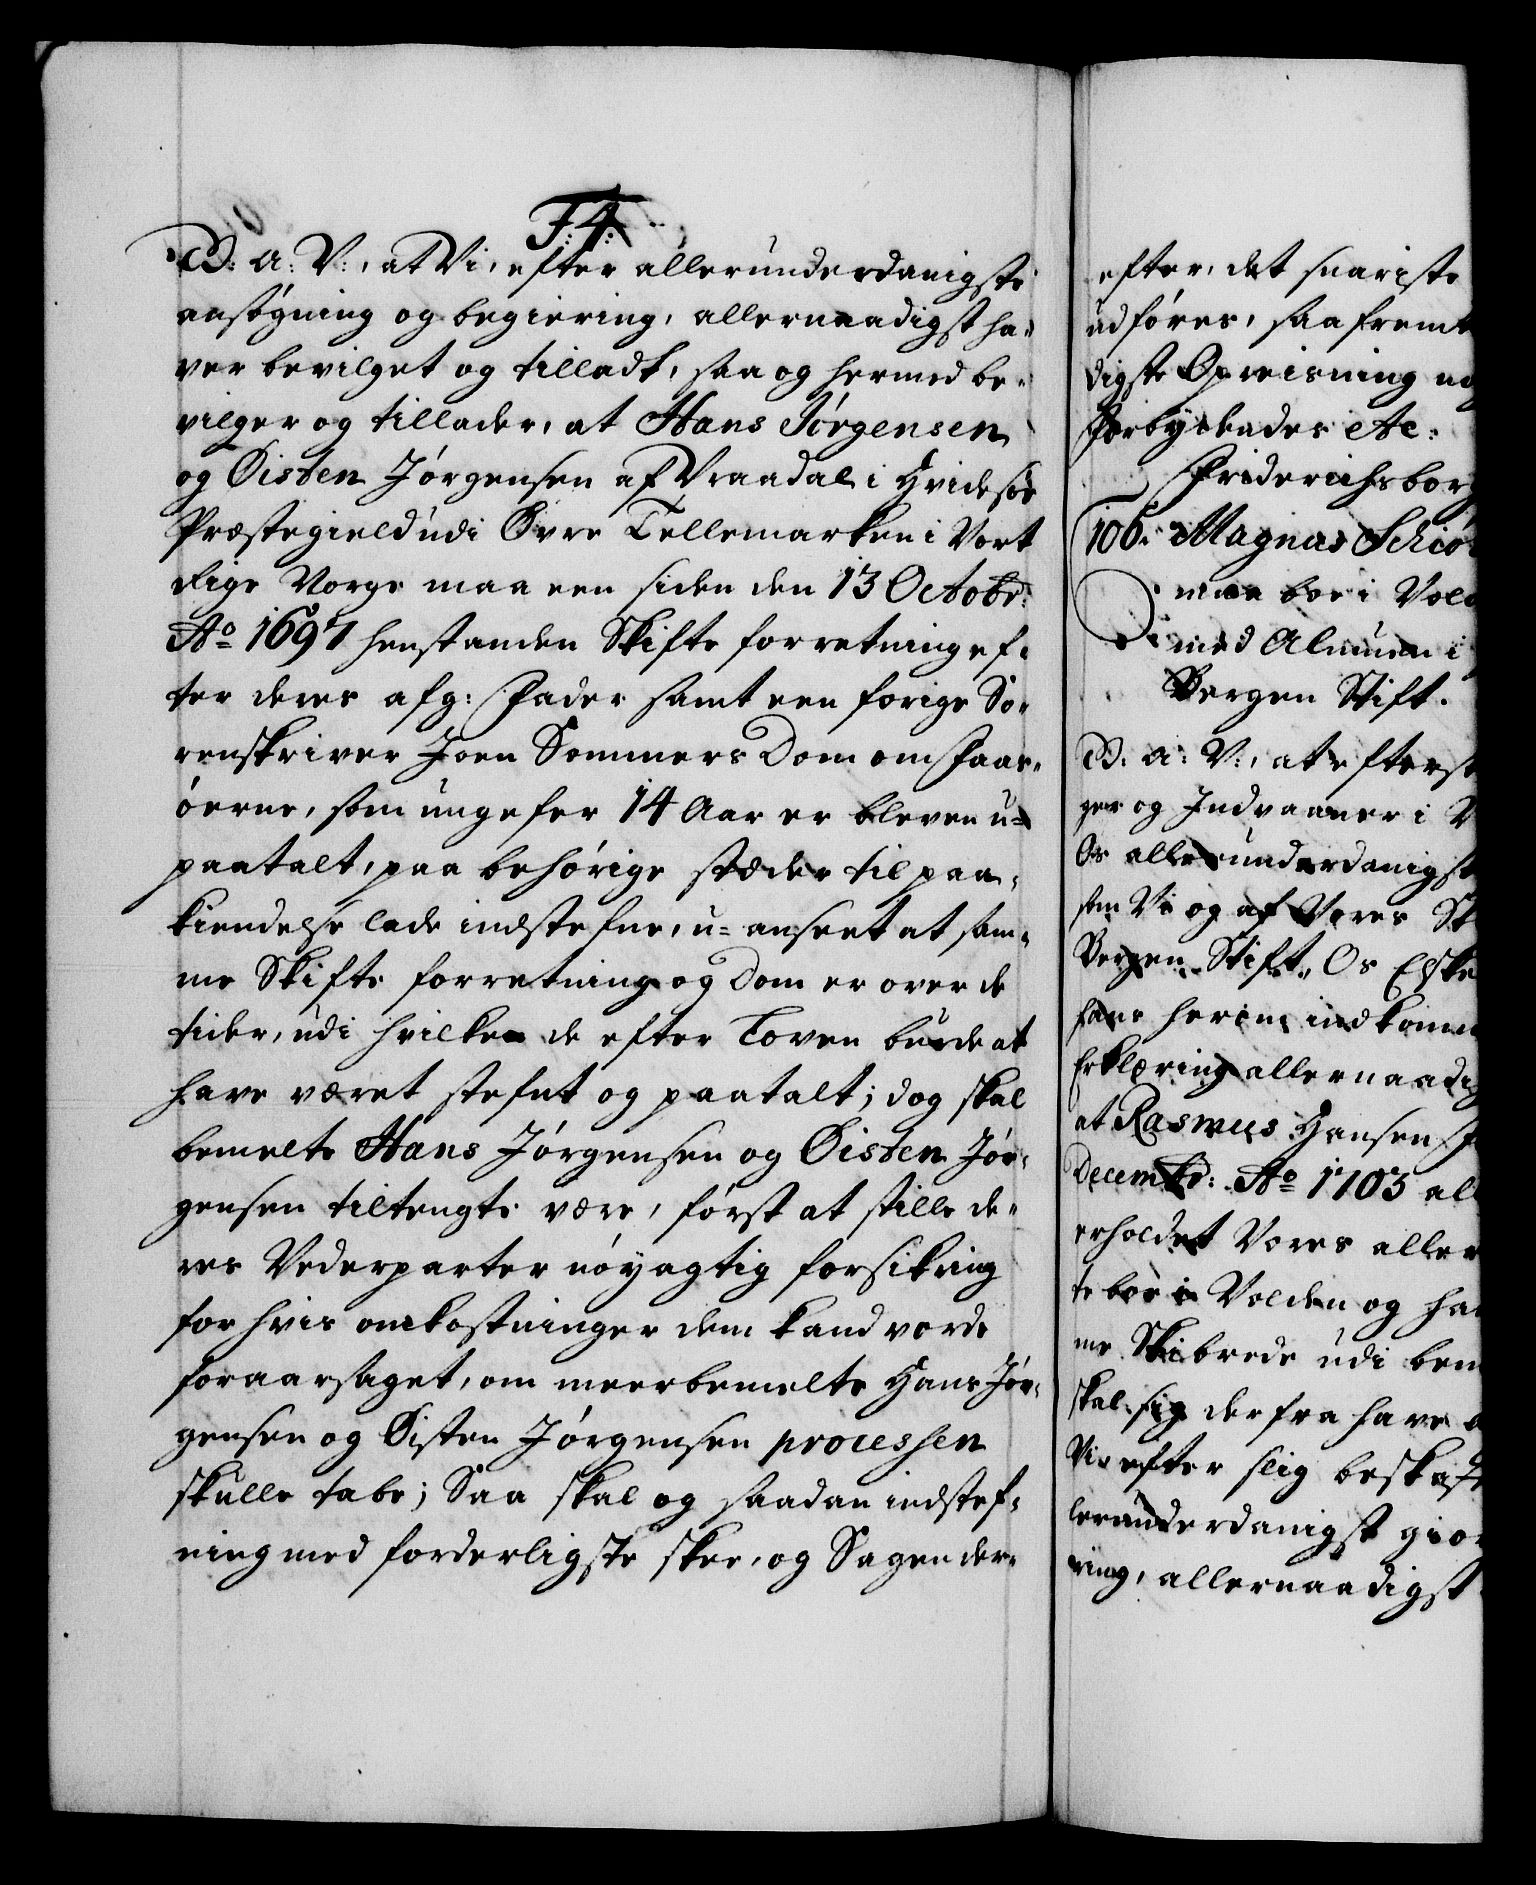 F: 4:
W: A: V:, at Vi, efter allerunderdanigste
ansøgning og begiering, allernaadigst ha-
ver bevilget og tilladt, saa og hermed be-
vilger og tillader, at Hans Jørgensen
og Øisten Jørgensen af Vraadal i Hvidesøe
Præstegield udi Øvre Tellemarken i Vort
Rige Norge maa een siden den 13 Octobr:
Ao 1697 henstanden Skifte forretning ef-
ter deres afg: Fader samt een forige So-
renskriver Joen Sommers Dom om Faar-
øerne, som ungefer 14 Aar er bleven u-
paatalt, paa behørige stæder til paa-
kiendelse lade indstefne, u-anseet at sam-
me Skifte forretning og Dom er over de
tider, udi hvilken de efter Loven burde at
have været stefnt og paatalt; dog skal
bemelte Hans Jørgensen og Øisten Jør-
gensen tiltengte være, først at stille de-
res Vederparter nøyagtig forsikring
for hvis omkostninger dem kand vorde
foraarsaget, om meerbemelte Hans Jør-
gensen og Øisten Jørgensen processen
skulle tabe; Saa skal og saadan indstef-
ning med forderligste skee, og Sagen der-
efter, det snariste
udføres, saa fremt
digste Opreisning
Forbydendes etc:
Friderichsborg
106. Magnus Schiø
maa boe i Vold
med Almuen i
Bergen Stift.
W: A: V:, at efterso
ger og Indvaaner i V
Os allerunderdanigst
som Vi og af Vores St
Bergen Stift, Os Elske
hans herom indkomm
Erklæring allernaadig
at Rasmus Hansen
Decembr: Ao 1703 all
erholdet Vores aller
te boe i Volden og ha
me Skibrede udi bem
skal sig derfra have
Vi efter slig beskaf
lerunderdanigst gior
ring, allernaadigst